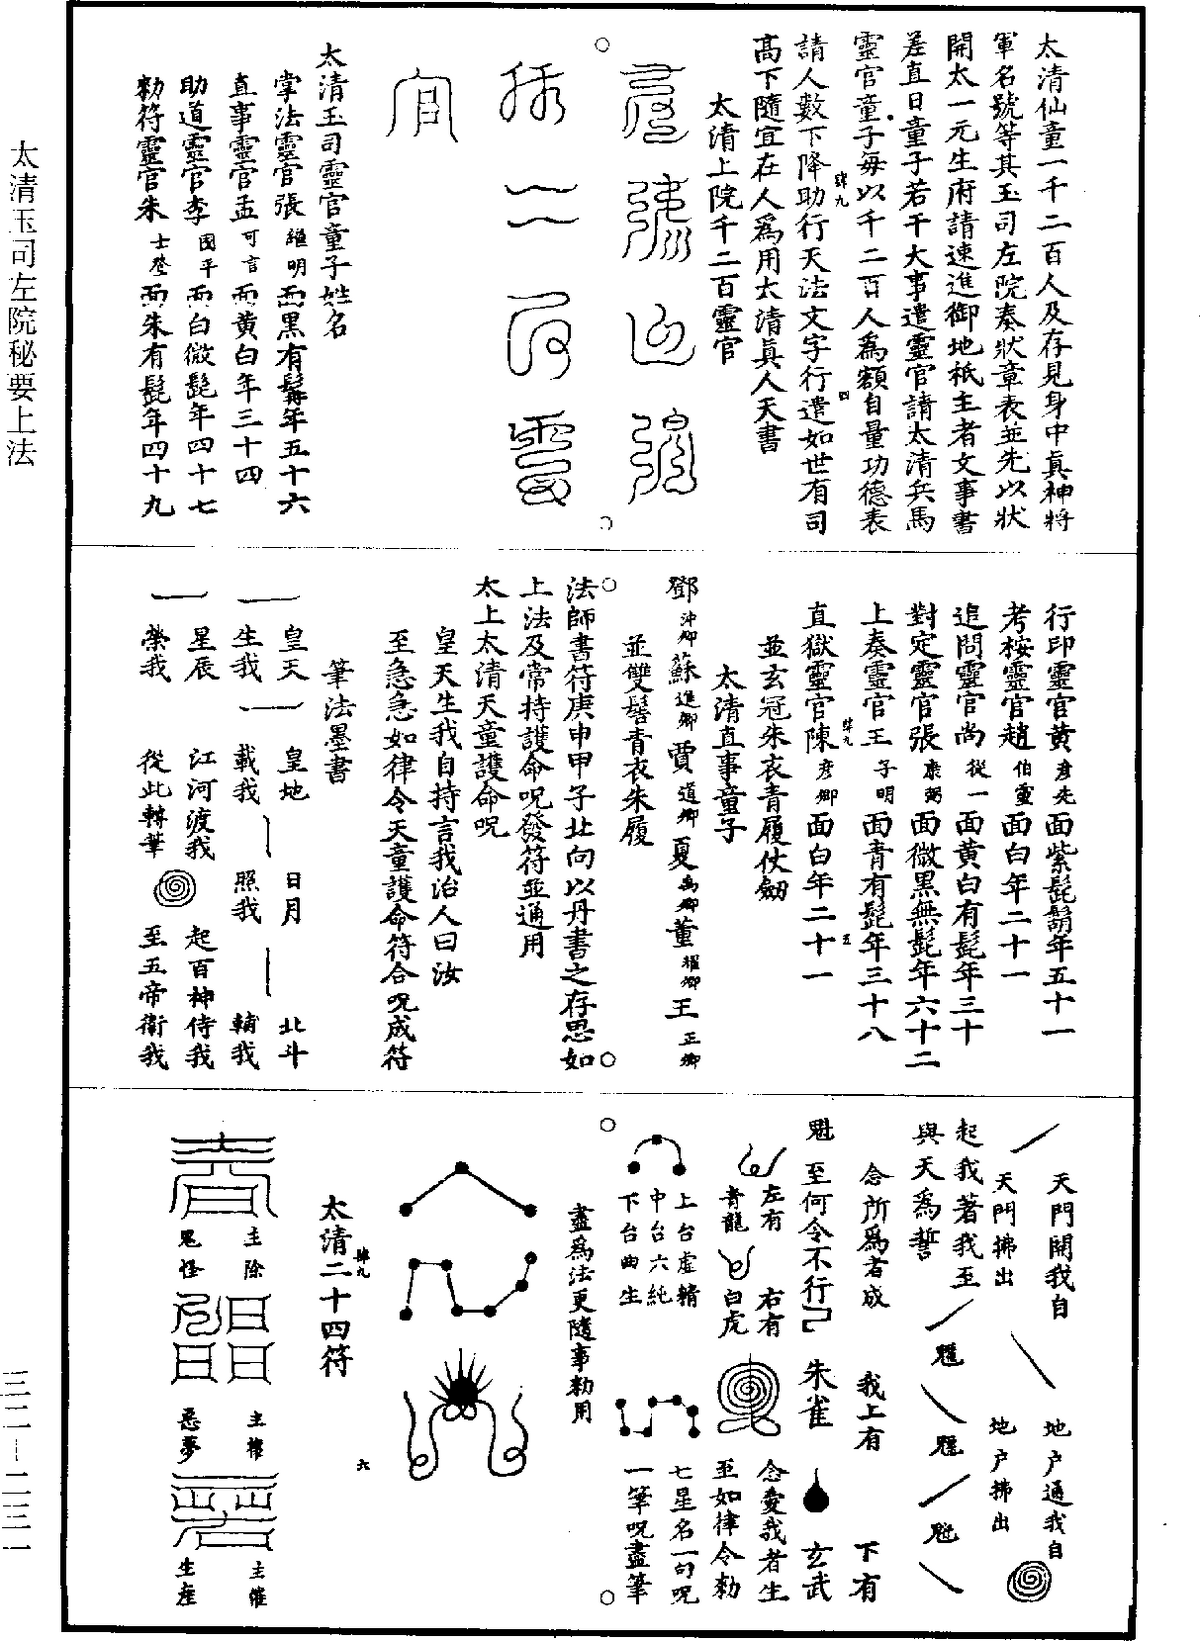 太清仙童一千二百人及存見身中眞神將
軍名號等其玉司左院奏狀章表並先以狀
開太一元生府請速進御地祇主者文事書
差直日童子若干大事遣靈官請太清兵馬
靈官童子每以千二百人爲額自量功德表
請人數下降助行天法文字行遣如世有司
高下隨宜在人爲用太清眞人天書
太清上院千二百靈官
太清玉司靈官童子姓名
掌法靈官張繼明面黑有髯年五十六
直事靈官孟可言面黃白年三十四
助道靈官李國平面白微髭年四十七
勑符靈官朱士登面朱有髭年四十九
行印靈官黃彥先面紫髭鬍年五十一
考按靈官趙伯靈面白年二十一
追問靈官尚從一面黃白有髭年三十
對定靈官張康弼面微黑無髭年六十二
上奏靈官王子明面青有髭年三十八
直獄靈官陳彥卿面白年二十一
並玄冠朱衣青履仗劒
太清直事童子
鄧沖卿蘇進卿賈道卿夏禹卿董耀卿王正卿
並雙髻青衣朱履
法師書符庚申甲子北向以丹書之存思如
上法及常持護命呪發符並通用
太上太清天童護命呪
皇天生我自持言我治人曰汝
至急急如律令天童護命符合呪成符
筆法墨書
皇天 皇地 日月 北斗
生我 載我 照我 輔我
星辰 江河渡我 起百神侍我
榮我 從此轉筆 至五帝衛我
天門開我自 地户通我自
天門拂出 地户拂出
起我著我至
與天爲誓 魁 魁 魁
念所爲者成 我上有 下有
魁 至何令不行 朱雀 玄武
左有 右有 念愛我者生
青龍 白虎 至如律令勑
上台虛精 七星名一句呪
中台六純 一筆呪盡筆
下台曲生
盡爲法更隨事勑用
太清二十四符
主除 主禳 主催
鬼怪 惡夢 生産
太清玉司左院秘要上法
三二—二三一